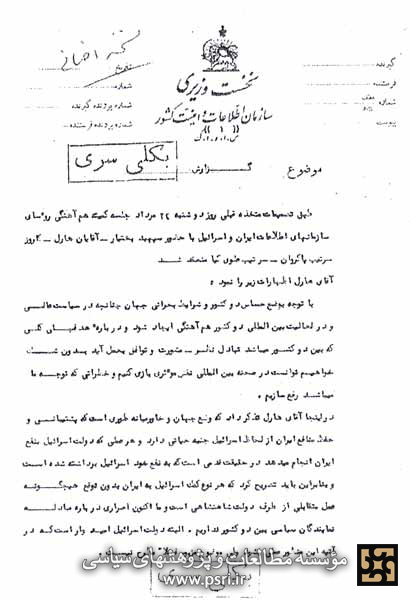 نسخه اضافی
نخست وزیری
سازمان اطلاعات و امنیت کشور
س.ا.و.ا.ک
گیرنده
فرستنده
شماره
پیوست
تاریخ
شماره
شماره پرونده گیرنده
شماره پرونده فرستنده
بکلی سری
گزارش
موضوع
طبق تصمیمات متخذه قبلی روز دوشنبه ۲۲ مرداد جلسه کمیته هم آهنگی روسای
سازمانهای اطلاعات ایران و اسرائیل با حضور سپهبد بختیار ـ آقایان هارل ـ کاروز
سرتیپ پاکروان ـ سرتیپ علوی کیا منعقد شد
آقای هارل اظهارات زیر را نمود :
با توجه بوضع حساس دو کشور و شرایط بحرانی جهان چنانچه در سیاست عالی
و در فعالیت بین المللی دو کشور هم آهنگی ایجاد شود و درباره هدفهای کلی
که بین دو کشور میباشد تبادل نظر ـ مشورت و توافق بعمل آید بدون شک
خواهیم توانست در صحنه بین المللی نقش موثری بازی کنیم و خطراتی که توجه ما
میباشد رفع سازیم .
در اینجا آقای هارل تذکر داد که وضع جهان و خاورمیانه طوری است که پشتیبانی و
حفظ منافع ایران از لحاظ اسرائیل جنبه حیاتی دارد و هر عملی که دولت اسرائیل بنفع
ایران انجام میدهد در حقیقت قدمی است که به نفع خود اسرائیل برداشته شده است
و بنابراین باید تصریح کرد که هر نوع کمک اسرائیل به ایران بدون توقع هیچگونه
عمل متقابلی از طرف دولت شاهنشاهی است و ما اکنون اصراری درباره مبادله
نمایندگان سیاسی بین دو کشور نداریم . البته دولت اسرائیل امیدوار است که در
آتیه این منظور عملی شود ولی
بکلی سری
مؤسسه مطالعات و پژوهشهای سیاسی
www.psri.ir